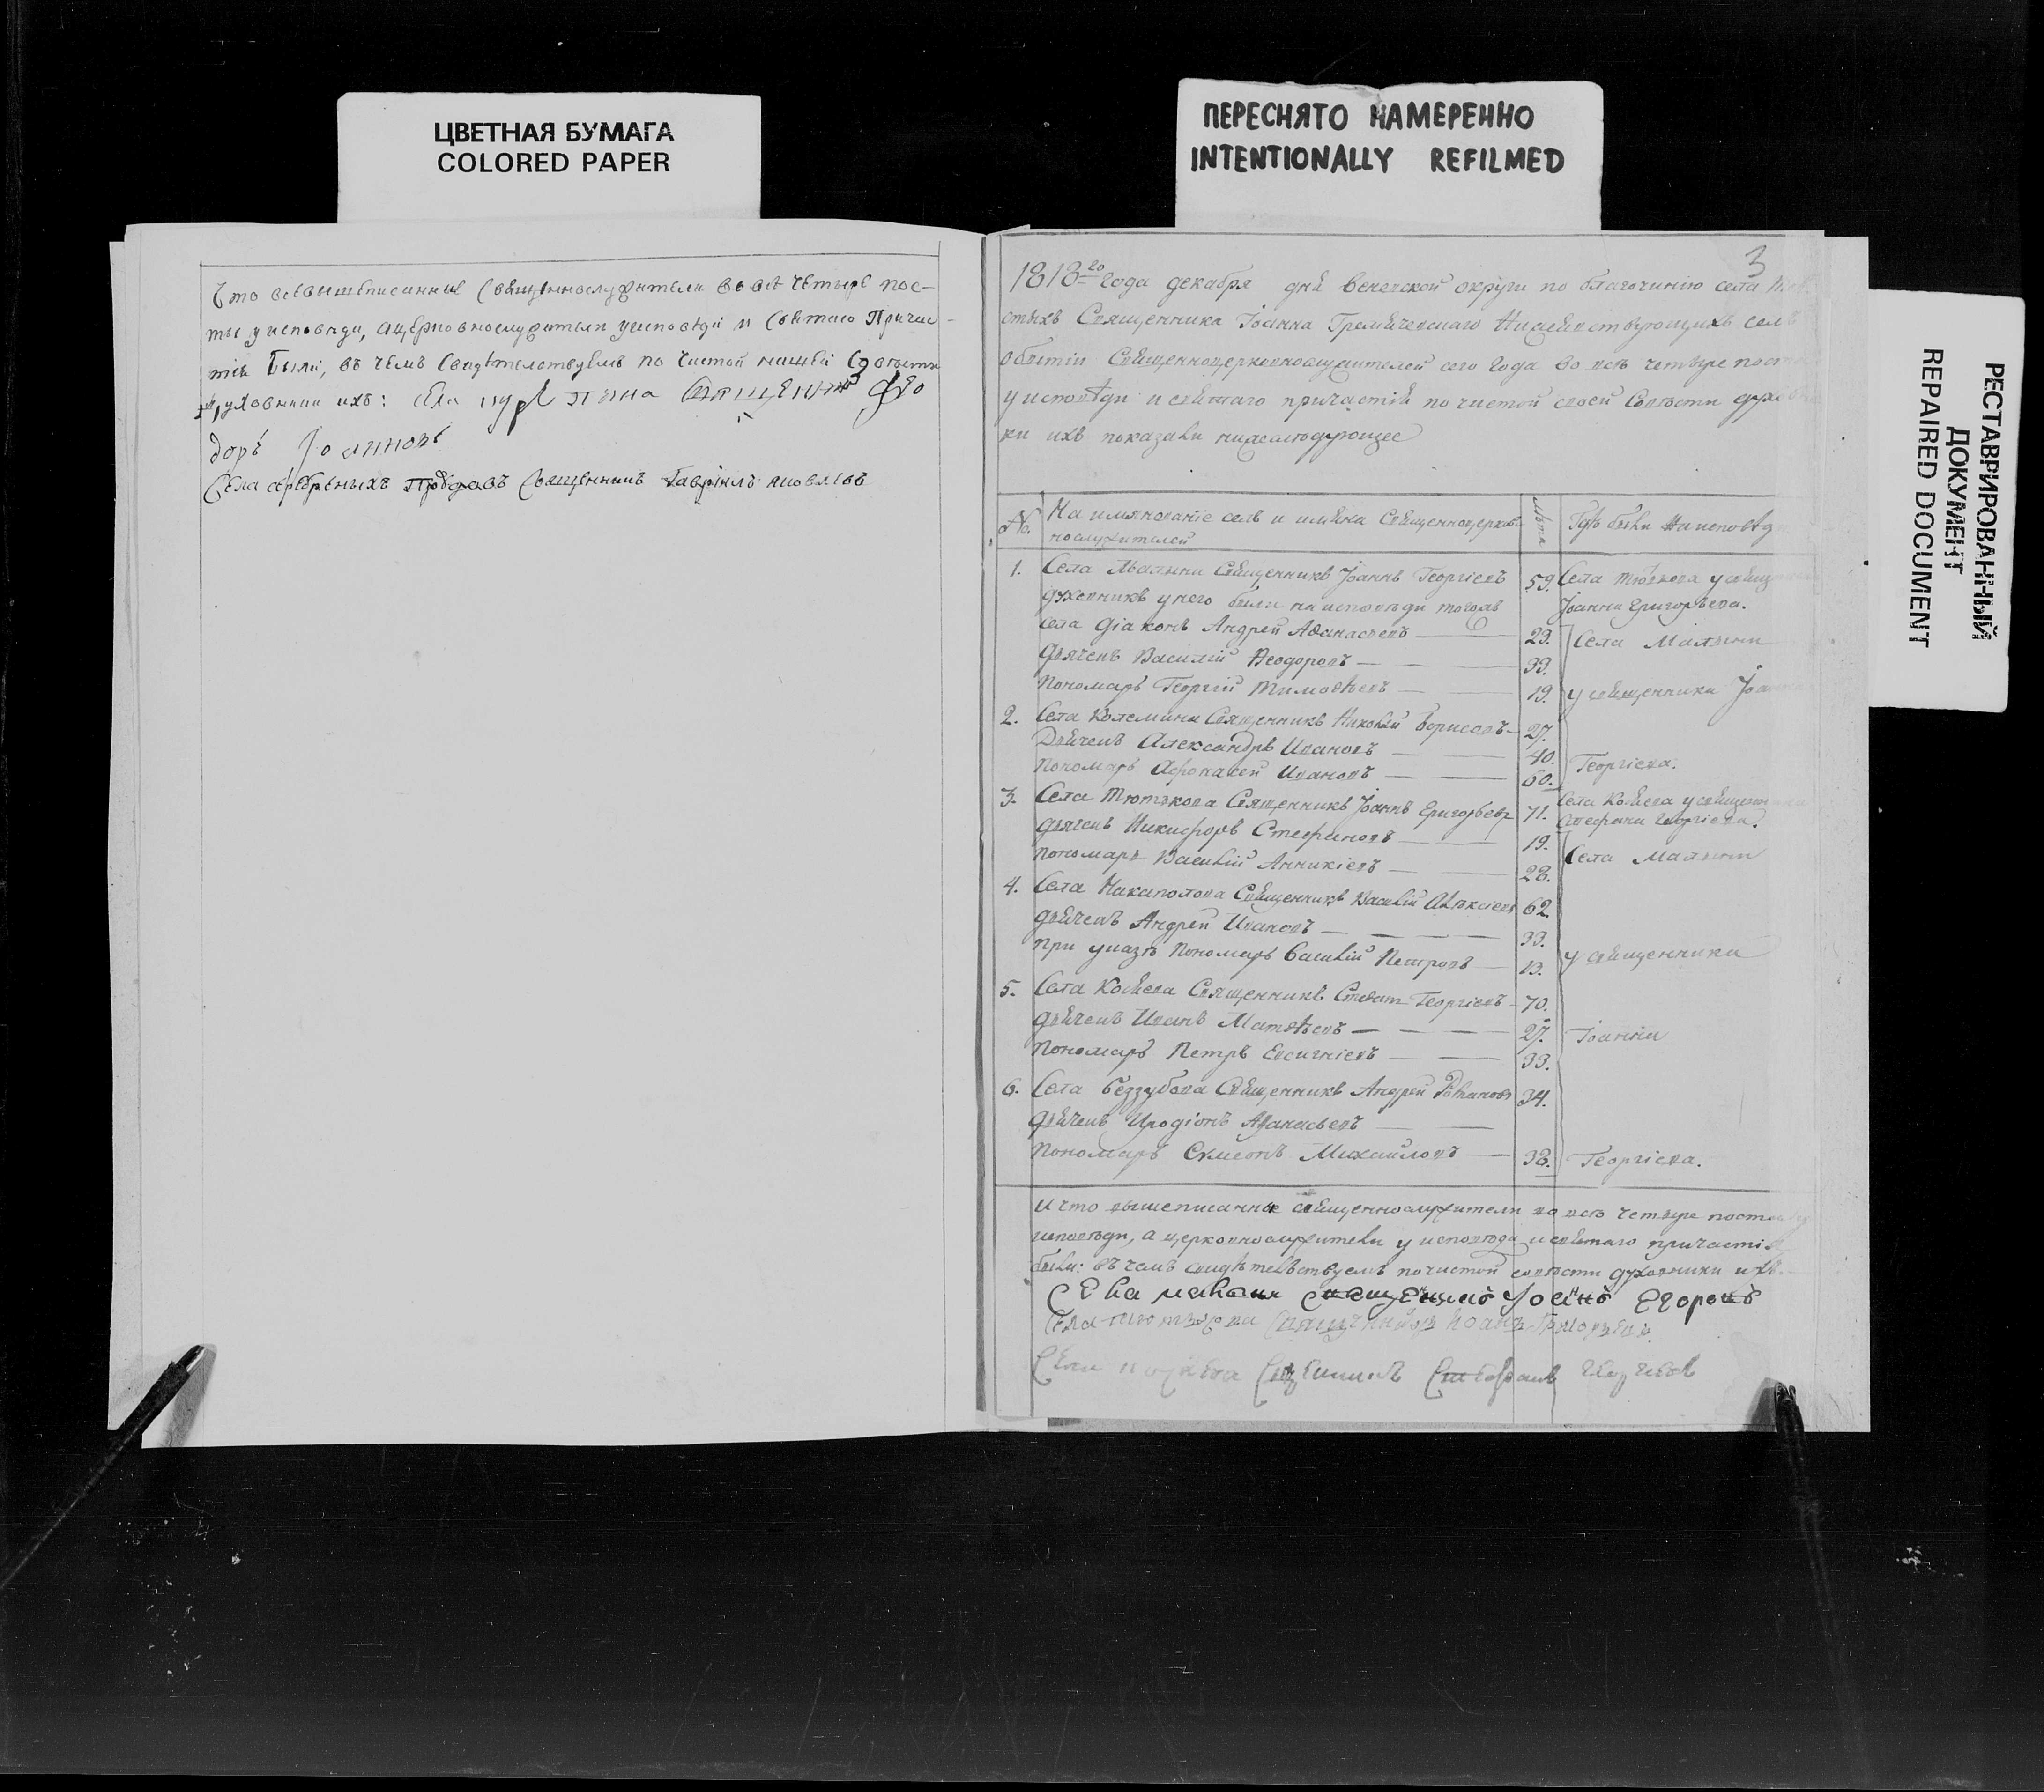 ЦВЕТНАЯ БУМАГА
COLORED PAPER
ПЕРЕСНЯТО НАМЕРЕННО
INTENTIONALLY REFILMED
РЕСТАВРИРОВАННЫЙ
ДОКУМЕНТ
REPAIRED DOCUMENT
Что всѣ вышеписанные священнослужители во всѣ четыре пос-
ты у исповѣди, а церковнослужители у исповѣди и святаго Причас-
тія были, въ чемъ свидѣтелствуемъ по чистой нашей совѣсти
духовники ихъ: села священникъ Фео
доръ
Села серебреныхъ прудовъ священникъ Гавріилъ яковлевъ
3
1818го года декабря дня веневской округи по благочинію села
стыхъ Священника Іоанна Нижеслѣдствующихъ селъ
о бытіи Священноцерковнослужителей сего года во всѣ четыре пост
у исповѣди и святаго причастія по чистой своей совѣсти духовни
ки ихъ показали нижеслѣдующее
№. Наимянованіе селъ и имяна Священноцерков-
нослужителей
лѣта
Гдѣ были на исповѣд
1. Села Малыни Священникъ Іоаннъ Георгіевъ 59. Села Тютькова у священ
духовникъ у него были на исповѣди тогожъ Іоанна Григорьева.
села діаконъ Андрей Аѳанасьевъ 29. Села Малыни
дьячекъ Василій Ѳеодоровъ 33.
Пономарь Георгій Тимоѳѣевъ 19. у священника Іоанна
2. Села Колемина Священникъ Николай Борисовъ 27.
Дьячекъ Александръ Ивановъ 40.
Пономарь Афонасей Ивановъ 60. Георгіева.
3. Села Тютькова Священникъ Іоаннъ Григорьевъ 71. Села Кобяева у священника
Стефана Георгіева.
дьячекъ Никифоръ Стефановъ 19.
Пономарь Василій Анникіевъ 28. Села Малыни
4. Села Накаполова Священникъ Василій Алексіевъ 62.
дьячекъ Андрей Ивановъ 33.
при указѣ Пономарь Василій Петровъ 13. у священника
5. Села Кобяева Священникъ Стефанъ Георгіевъ 70.
дьячекъ Иванъ Матвѣевъ 27. Іоанна
Пономарь Петръ Евсигніевъ 33.
6. Села Беззубова Священникъ Андрей Романовъ 34.
дьячекъ Иродіонъ Аѳанасьевъ
Пономарь Сумеонъ Михайловъ 38. Георгіева.
И что вышеписанные священнослужители во всѣ четыре поста у
исповѣди, а церковнослужители у исповѣди и святаго причастія
были: въ чемъ свидѣтельствуемъ по чистой совѣсти духовники ихъ.
Села малыни священникъ Іоаннъ Егоровъ
Села тютькова священникъ Іоанъ Григорьевъ
Села священникъ Стефанъ Георгіевъ